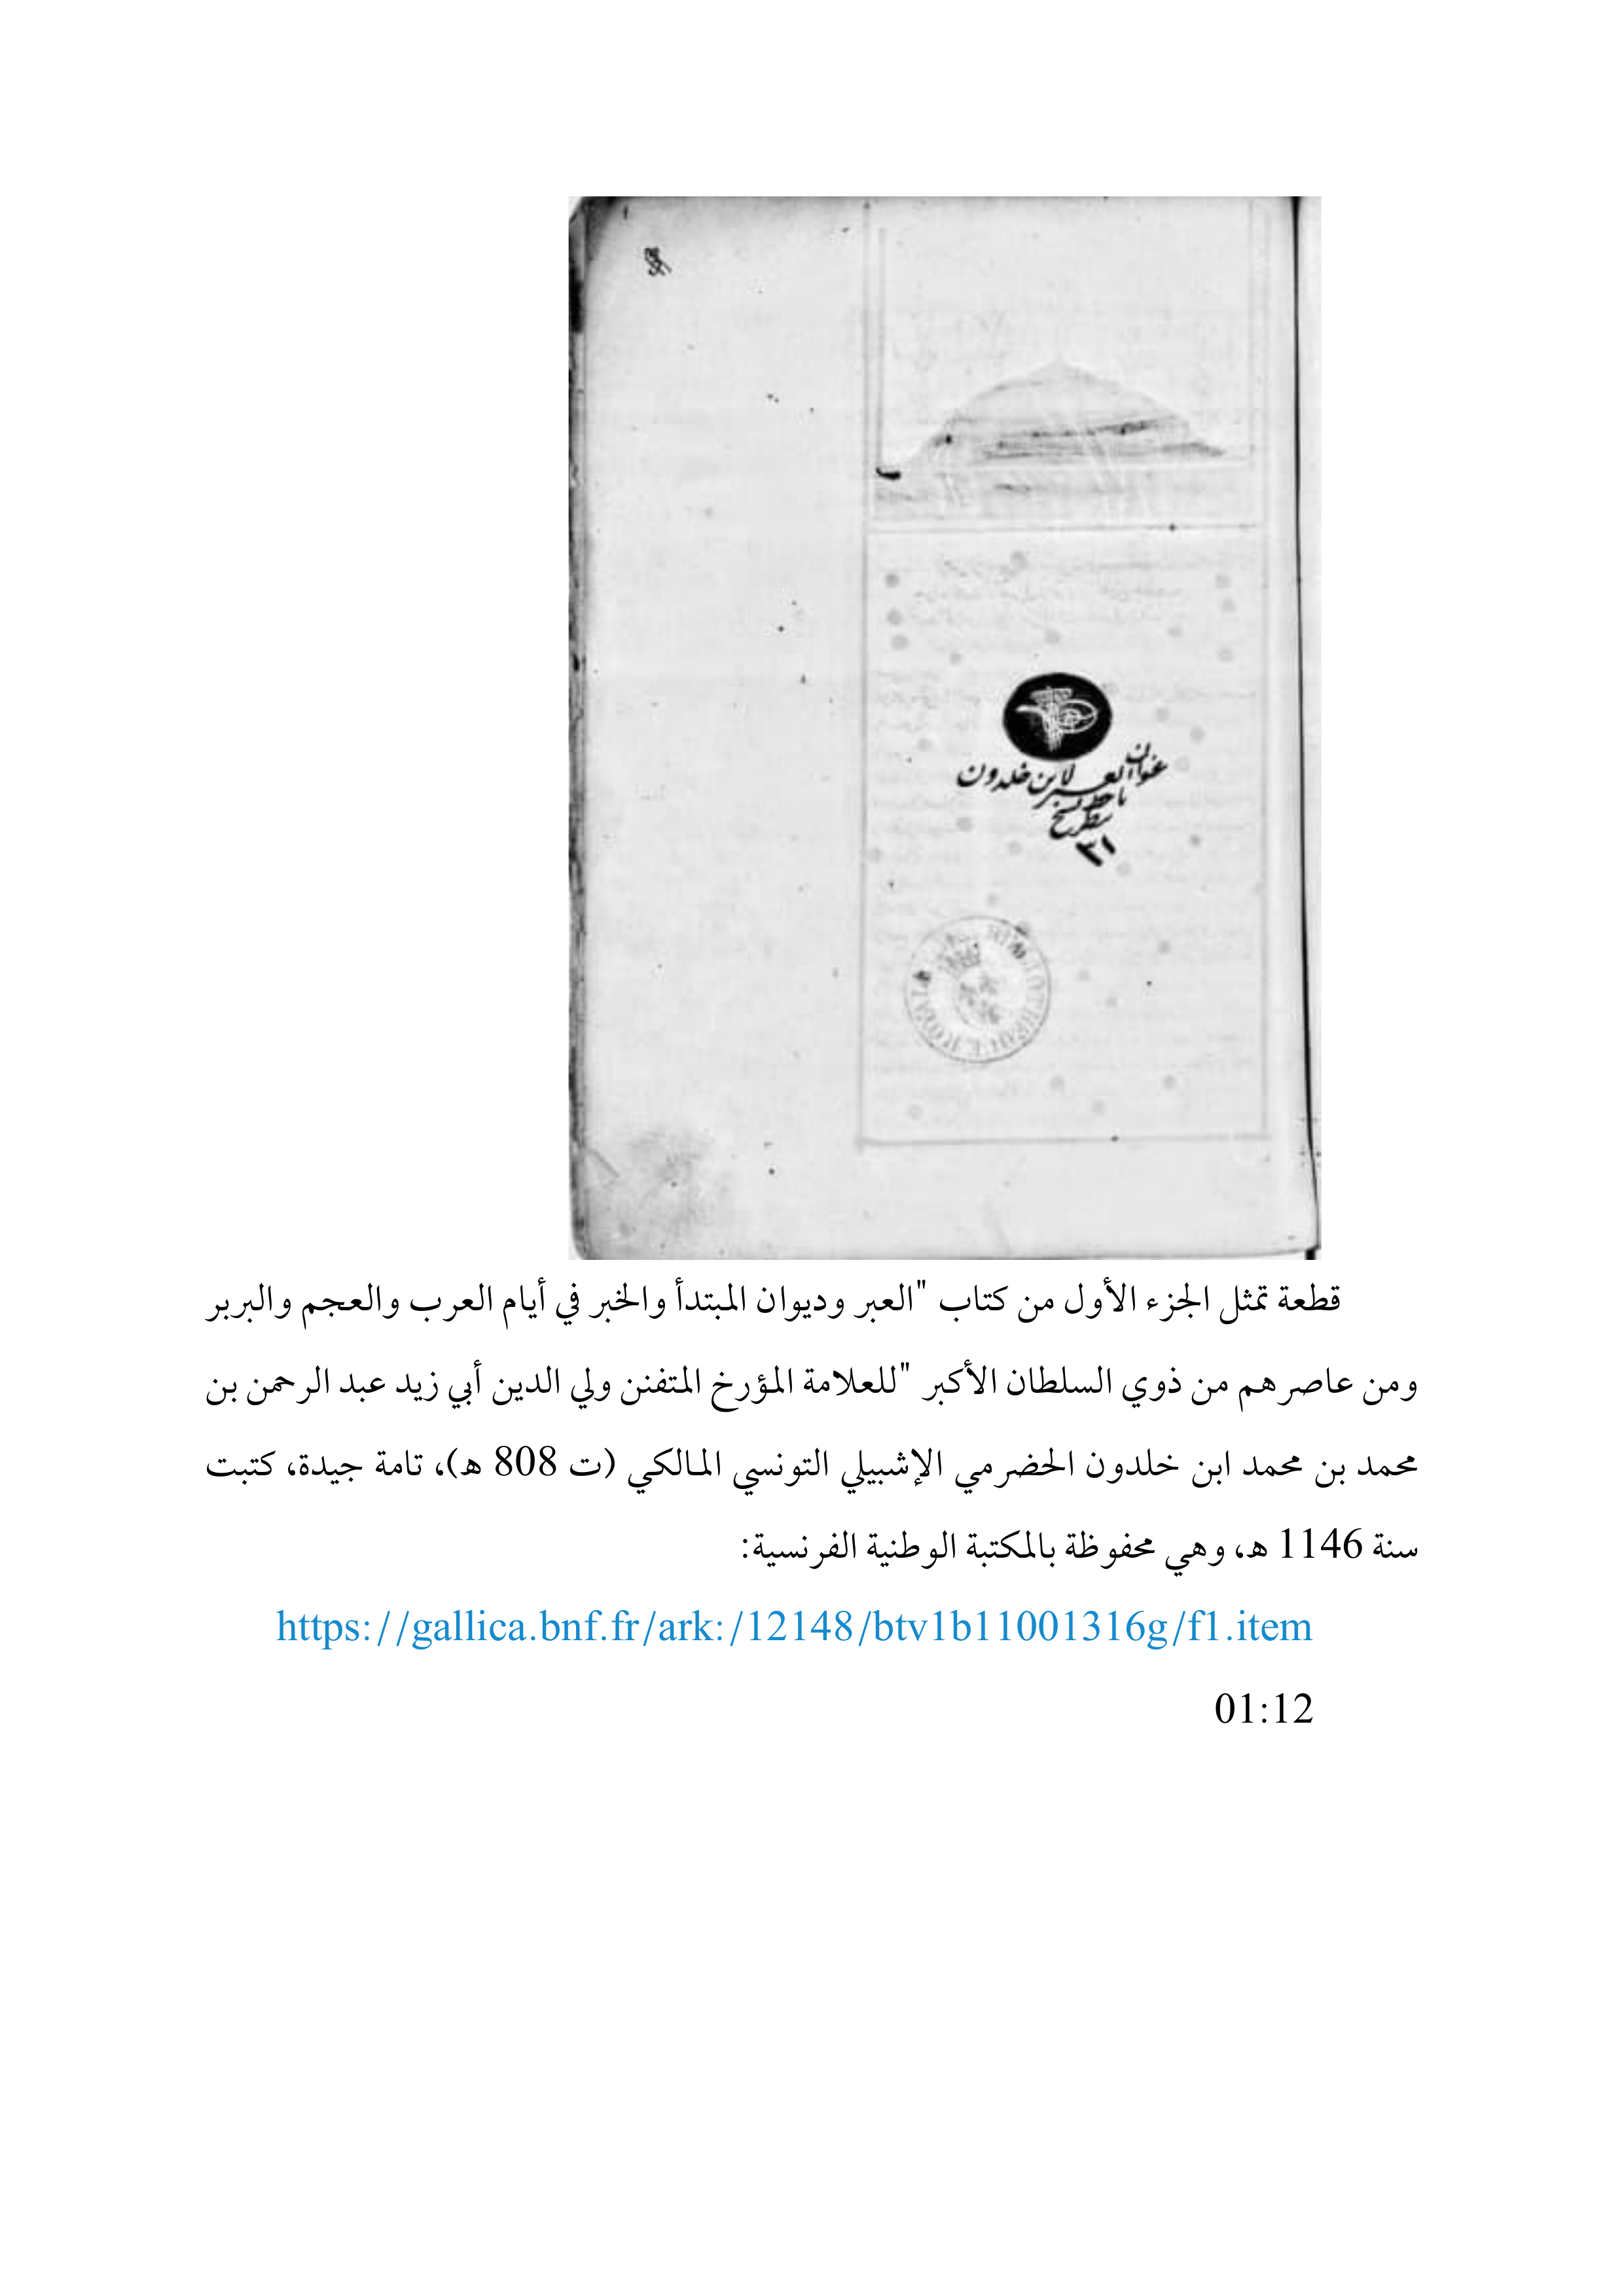 عنوان العبر لابن خلدون
باخط نسخ
سطر
٣١
BIBLIOTHEQUE ROYALE
قطعة تمثل الجزء الأول من كتاب "العبر وديوان المبتدأ والخبر في أيام العرب والعجم والبربر
ومن عاصرهم من ذوي السلطان الأكبر "للعلامة المؤرخ المتفنن ولي الدين أبي زيد عبد الرحمن بن
محمد بن محمد ابن خلدون الحضرمي الإشبيلي التونسي المالكي (ت 808 هـ)، تامة جيدة، كتبت
سنة 1146 هـ، وهي محفوظة بالمكتبة الوطنية الفرنسية:
https://gallica.bnf.fr/ark:/12148/btv1b11001316g/f1.item
01:12